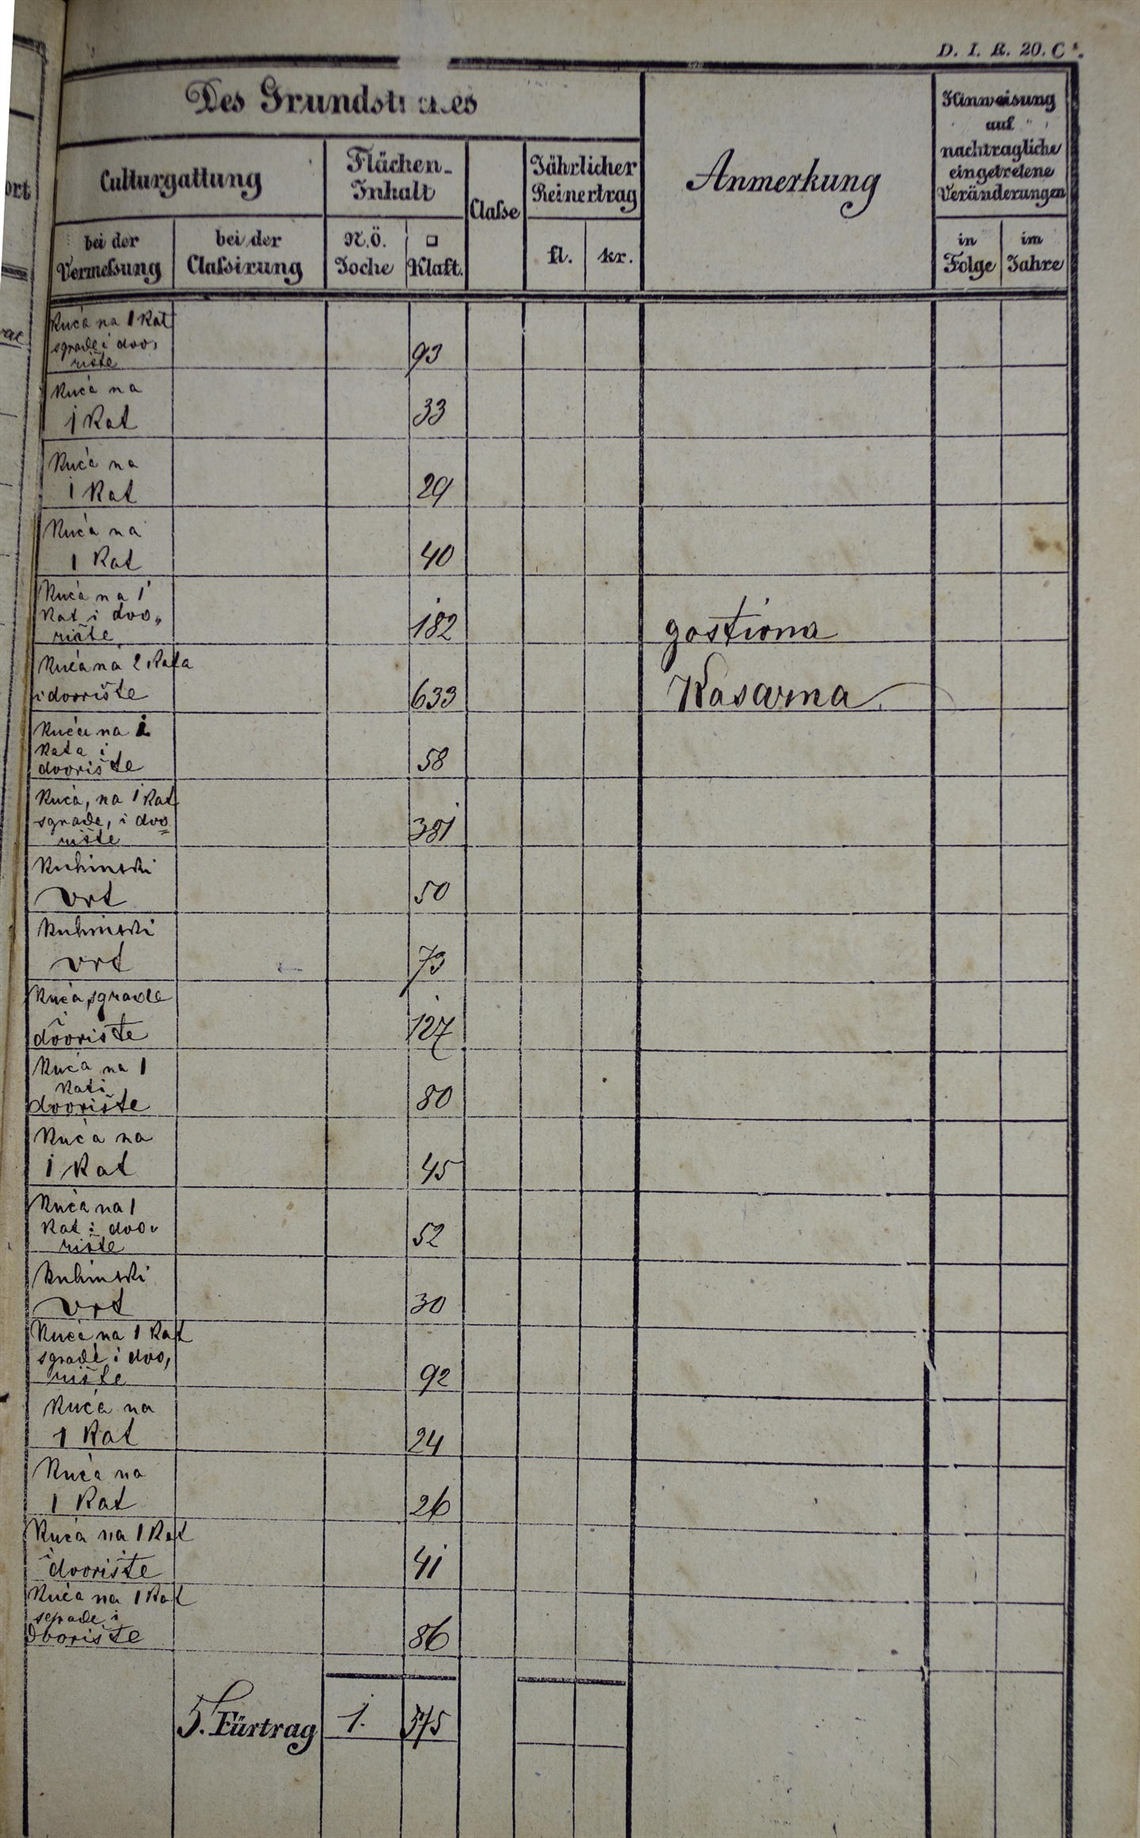 D. I. R. 20. C
Des Grundstückes
Culturgattung
Flächen-
Inhalt
Claße
Jährlicher
Reinertrag
Anmerkung
Hinweisung
auf
nachtragliche
eingetretene
Veränderungen
bei der
Vermeßung
bei der
Claßirung
N.Ö.
Joche
□
Klaft.
fl.
kr.
in
Folge
im
Jahre
Kuća na 1 Kat
sgrade i dvo,
rište
93
Kuća na
1 Kat
33
Kuća na
1 Kat
29
Kuća na
1 Kat
40
Kuća na 1
Kat i dvo„
rište
182
gostiona
Kuća na 2 Kata
i dvorište
633
Kasarna
Kuća na
Kata i
dvorište
58
Kuća, na 1 Kat
sgrade, i dvo=
rište
381
Kuhinski
vrt
50
Kuhinski
vrt
73
Kuća, sgrade
i
dvorište
127
Kuća na 1
Kat i
dvorište
80
Kuća na
1 Kat
45
Kuća na 1
Kat i dvo„
rište
52
Kuhinski
vrt
30
Kuća na 1 Kat
sgrade i dvo,
rište
92
Kuća na
1 Kat
24
Kuća na
1 Kat
26
Kuća na 1 Kat
i dvorište
41
Kuća na 1 Kat
sgrade i
dvorište
86
5. Fürtrag
1.
575